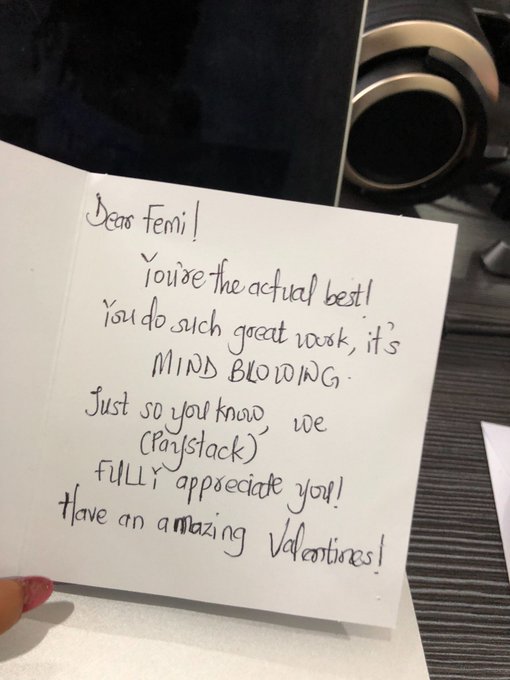 Dear Femi!
You're the actual best!
You do such great work, it's
MIND BLOWING.
Just so you know, we
(Paystack)
FULLY appreciate you!
Have an amazing Valentines!